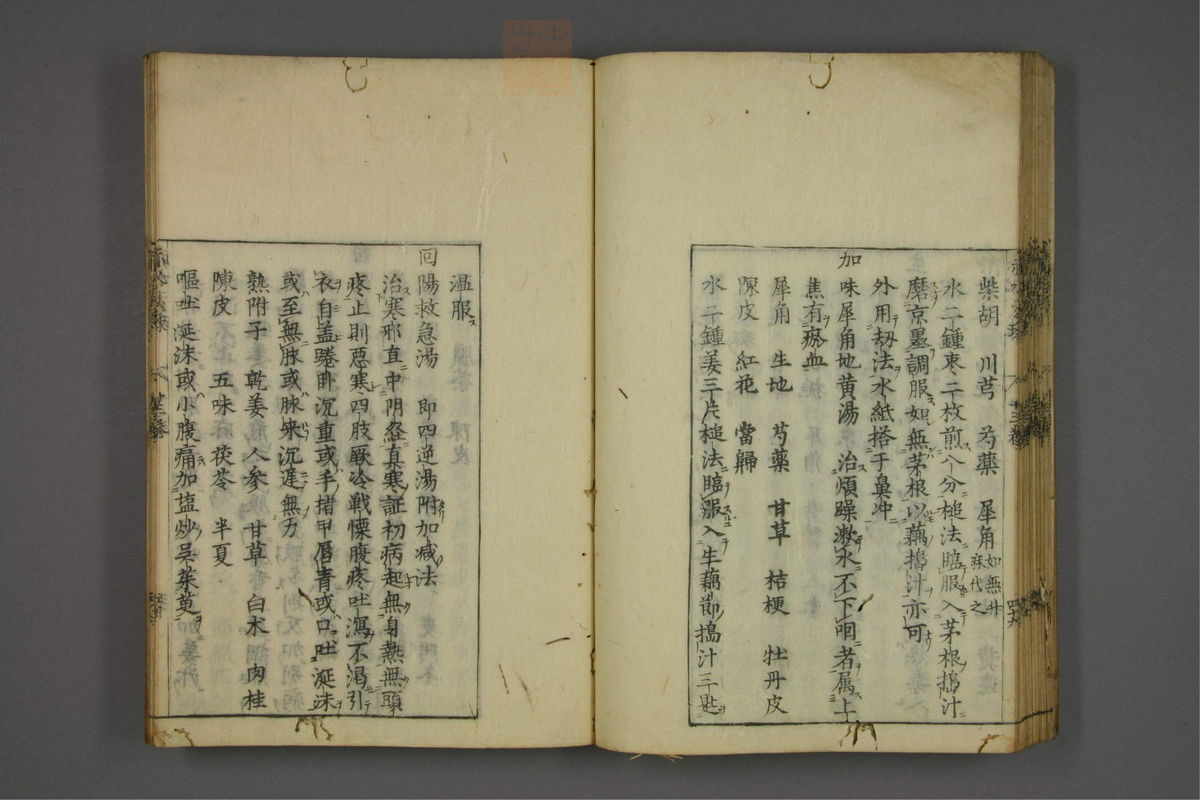 柴胡 川芎 芍藥 犀角如無升麻代之
水二鍾枣二枚煎八分槌法臨服入茅根搗汁
磨京墨調服如無茅根以藕搗汁亦可
外用刼法水紙搭于鼻冲
加味犀角地黄湯 治煩躁漱水不下咽者属上
焦有瘀血
犀角 生地 芍藥 甘草 桔梗 牡丹皮
陳皮 紅花 當歸
水二鍾姜三片槌法臨服入生藕節搗汁三匙
温服
回陽救急湯 即四逆湯附加减法
治寒邪直中阴経真寒証初病起無身熱無頭
疼止則惡寒四肢厥冷戦慄腹疼吐瀉不渇引
衣自盖踡卧沉重或手指甲唇青或口吐涎沫
或至無脉或脉来沉遲無力
熟附子 乾姜 人参 甘草 白术 肉桂
陳皮 五味 茯苓 半夏
嘔吐涎沫或小腹痛加塩炒吳茱萸